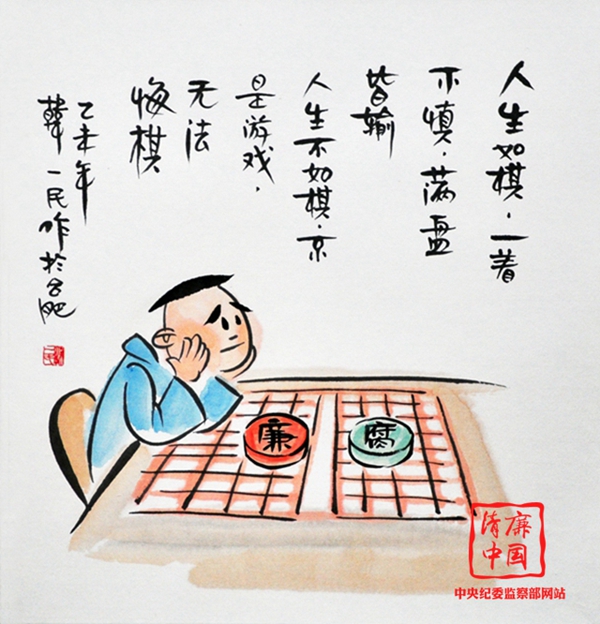 人生如棋·一着
不慎·满盘
皆输
人生不如棋·不
是游戏，
无法
悔棋
乙未年
韓一民作於合肥
廉
腐
清廉
中国
中央纪委监察部网站